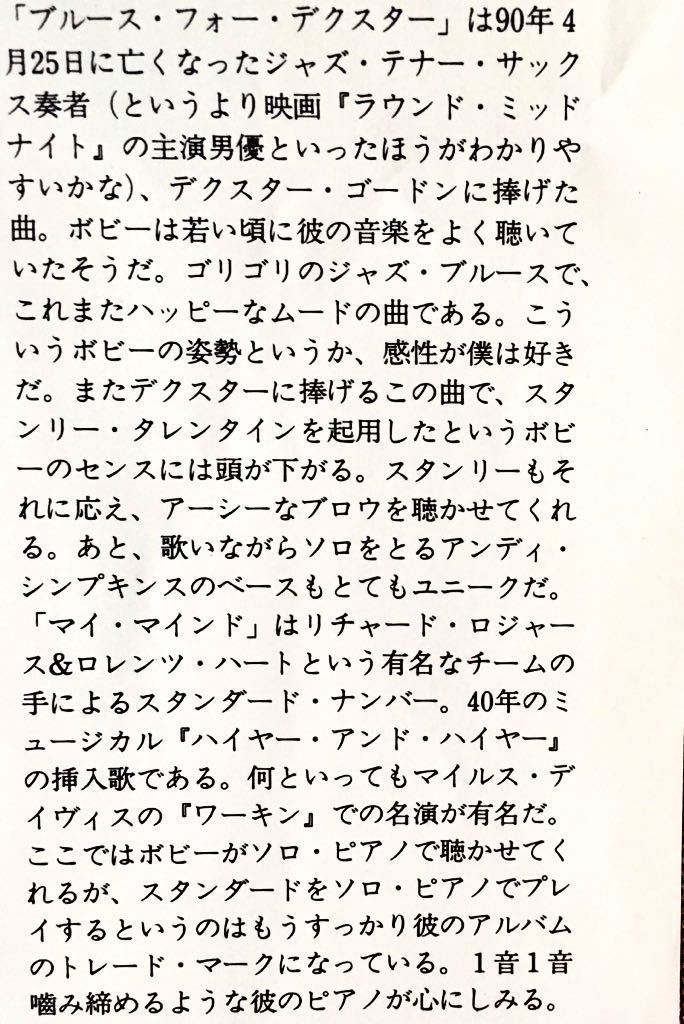 「ブルース・フォー・デクスター」は90年4
月25日に亡くなったジャズ・テナー・サック
ス奏者（というより映画『ラウンド・ミッド
ナイト』の主演男優といったほうがわかりや
すいかな）、デクスター・ゴードンに捧げた
曲。ボビーは若い頃に彼の音楽をよく聴いて
いたそうだ。ゴリゴリのジャズ・ブルースで、
これまたハッピーなムードの曲である。こう
いうボビーの姿勢というか、感性が僕は好き
だ。またデクスターに捧げるこの曲で、スタ
ンリー・タレンタインを起用したというボビ
ーのセンスには頭が下がる。スタンリーもそ
れに応え、アーシーなブロウを聴かせてくれ
る。あと、歌いながらソロをとるアンディ・
シンプキンスのベースもとてもユニークだ。
「マイ・マインド」はリチャード・ロジャー
ス&ロレンツ・ハートという有名なチームの
手によるスタンダード・ナンバー。40年のミ
ュージカル『ハイヤー・アンド・ハイヤー』
の挿入歌である。何といってもマイルス・デ
イヴィスの『ワーキン』での名演が有名だ。
ここではボビーがソロ・ピアノで聴かせてく
れるが、スタンダードをソロ・ピアノでプレ
イするというのはもうすっかり彼のアルバム
のトレード・マークになっている。１音１音
嚙み締めるような彼のピアノが心にしみる。